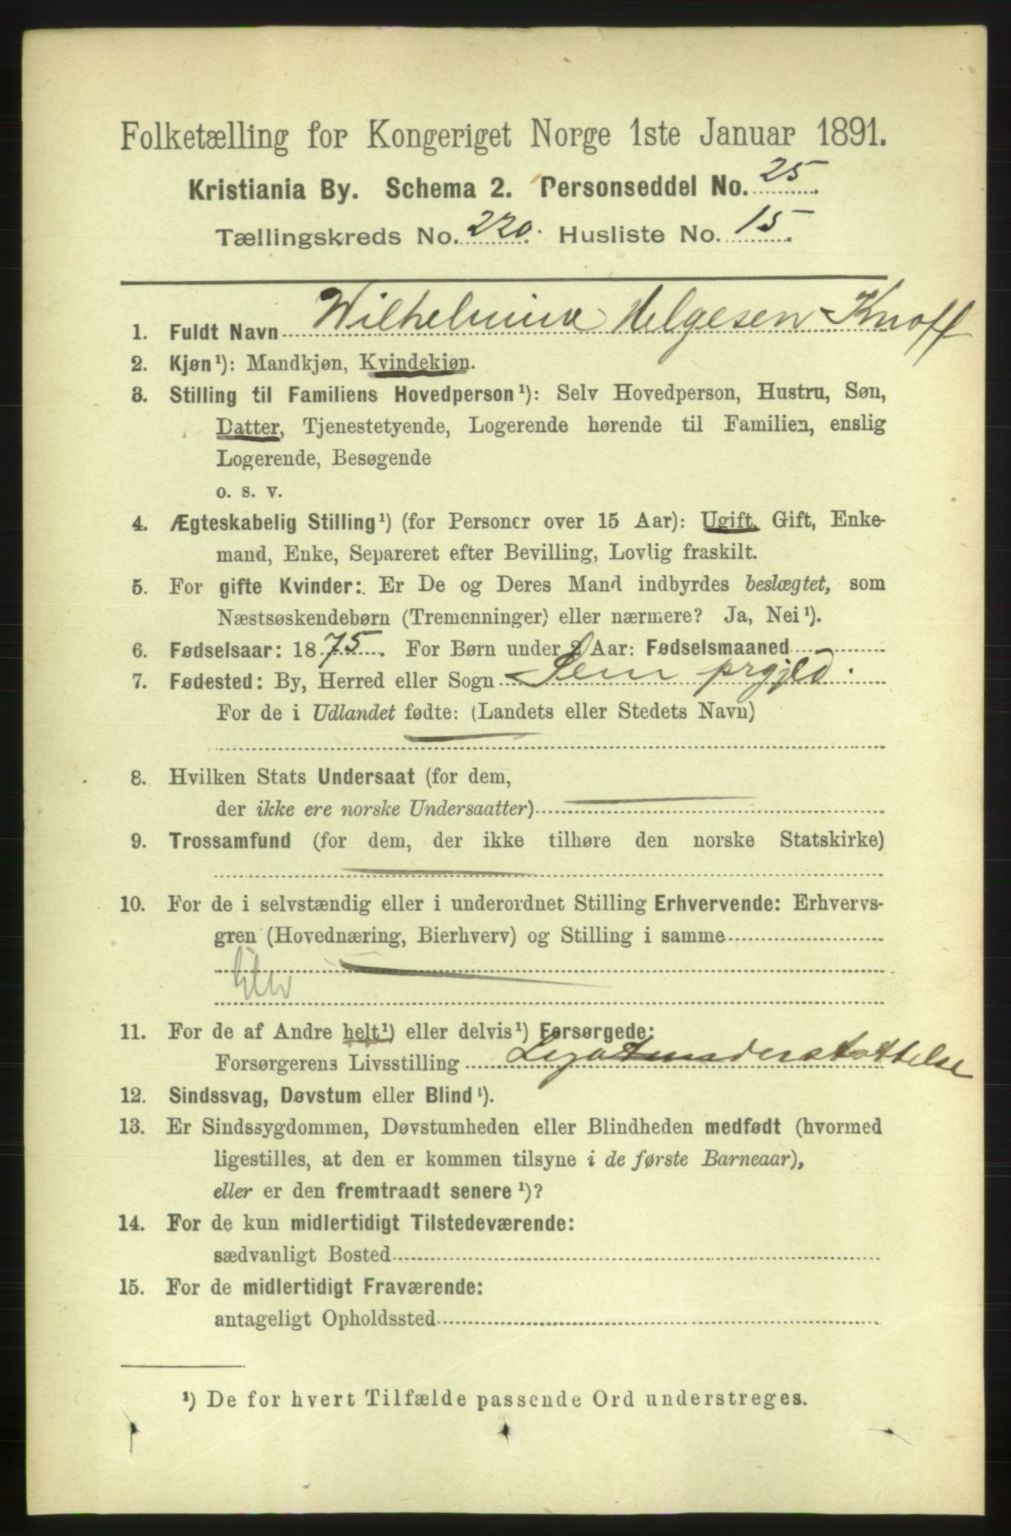 Folketælling for Kongeriget Norge 1ste Januar 1891.
Kristiania By. Schema 2. Personseddel No. 25.
Tællingskreds No. 220. Husliste No. 15.
1. Fuldt Navn Wilhelmine Helgesen Knoff
2. Kjøn¹): Mandkjøn, Kvindekjøn.
3. Stilling til Familiens Hovedperson¹): Selv Hovedperson, Hustru, Søn,
Datter, Tjenestetyende, Logerende hørende til Familien, enslig
Logerende, Besøgende
o. s. v.
4. Ægteskabelig Stilling¹) (for Personer over 15 Aar): Ugift, Gift, Enke-
mand, Enke, Separeret efter Bevilling, Lovlig fraskilt.
5. For gifte Kvinder: Er De og Deres Mand indbyrdes beslægtet, som
Næstsøskendebørn (Tremenninger) eller nærmere? Ja, Nei¹).
6. Fødselsaar: 1875. For Børn under 2 Aar: Fødselsmaaned
7. Fødested: By, Herred eller Sogn Sem prgjld.
For de i Udlandet fødte: (Landets eller Stedets Navn)
8. Hvilken Stats Undersaat (for dem,
der ikke ere norske Undersaatter)
9. Trossamfund (for dem, der ikke tilhøre den norske Statskirke)
10. For de i selvstændig eller i underordnet Stilling Erhvervende: Erhvervs-
gren (Hovednæring, Bierhverv) og Stilling i samme
Elev
11. For de af Andre helt¹) eller delvis¹) Forsørgede:
Forsørgerens Livsstilling Legatunderstøttelse
12. Sindssvag, Døvstum eller Blind¹).
13. Er Sindssygdommen, Døvstumheden eller Blindheden medfødt (hvormed
ligestilles, at den er kommen tilsyne i de første Barneaar),
eller er den fremtraadt senere¹)?
14. For de kun midlertidigt Tilstedeværende:
sædvanligt Bosted
15. For de midlertidigt Fraværende:
antageligt Opholdssted
¹) De for hvert Tilfælde passende Ord understreges.